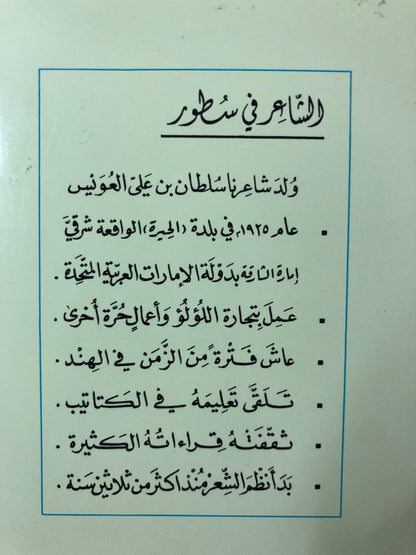 الشّاعر في سُطور
وُلدَ شاعرنا سُلطان بن عَليّ العُوَيس
▪ عام ١٩٢٥م، في بلدة (الحيرة) الواقعة شرقيَّ
إمارة الشارقة بدَولَة الإمارات العربيّة المتّحِدة.
▪ عَمِلَ بتجارة اللّؤلُؤ وَأعمالٍ حُرَّة أُخرىٰ.
▪ عاشَ فَتْرةً مِنَ الزَّمَن في الهِند.
▪ تَلَقَّى تَعليمَهُ في الكتاتيب.
▪ ثقّفَتْهُ قِراءاتهُ الكَثيرة.
▪ بَدَأ نظْمَ الشِّعر مُنذ اكثر مِن ثلاثينَ سَنة.